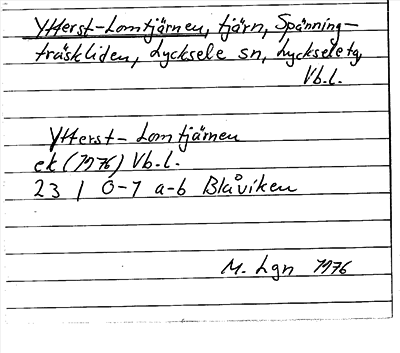 Ytterst-Lomtjärnen, tjärn, Spänning-
träskliden, Lycksele sn, Lycksele tg,
Vb.l.
Ytterst-Lomtjärnen
ek (1976) Vb.l.
23 I 0-1 a-b Blåviken
M. Lgn 1976